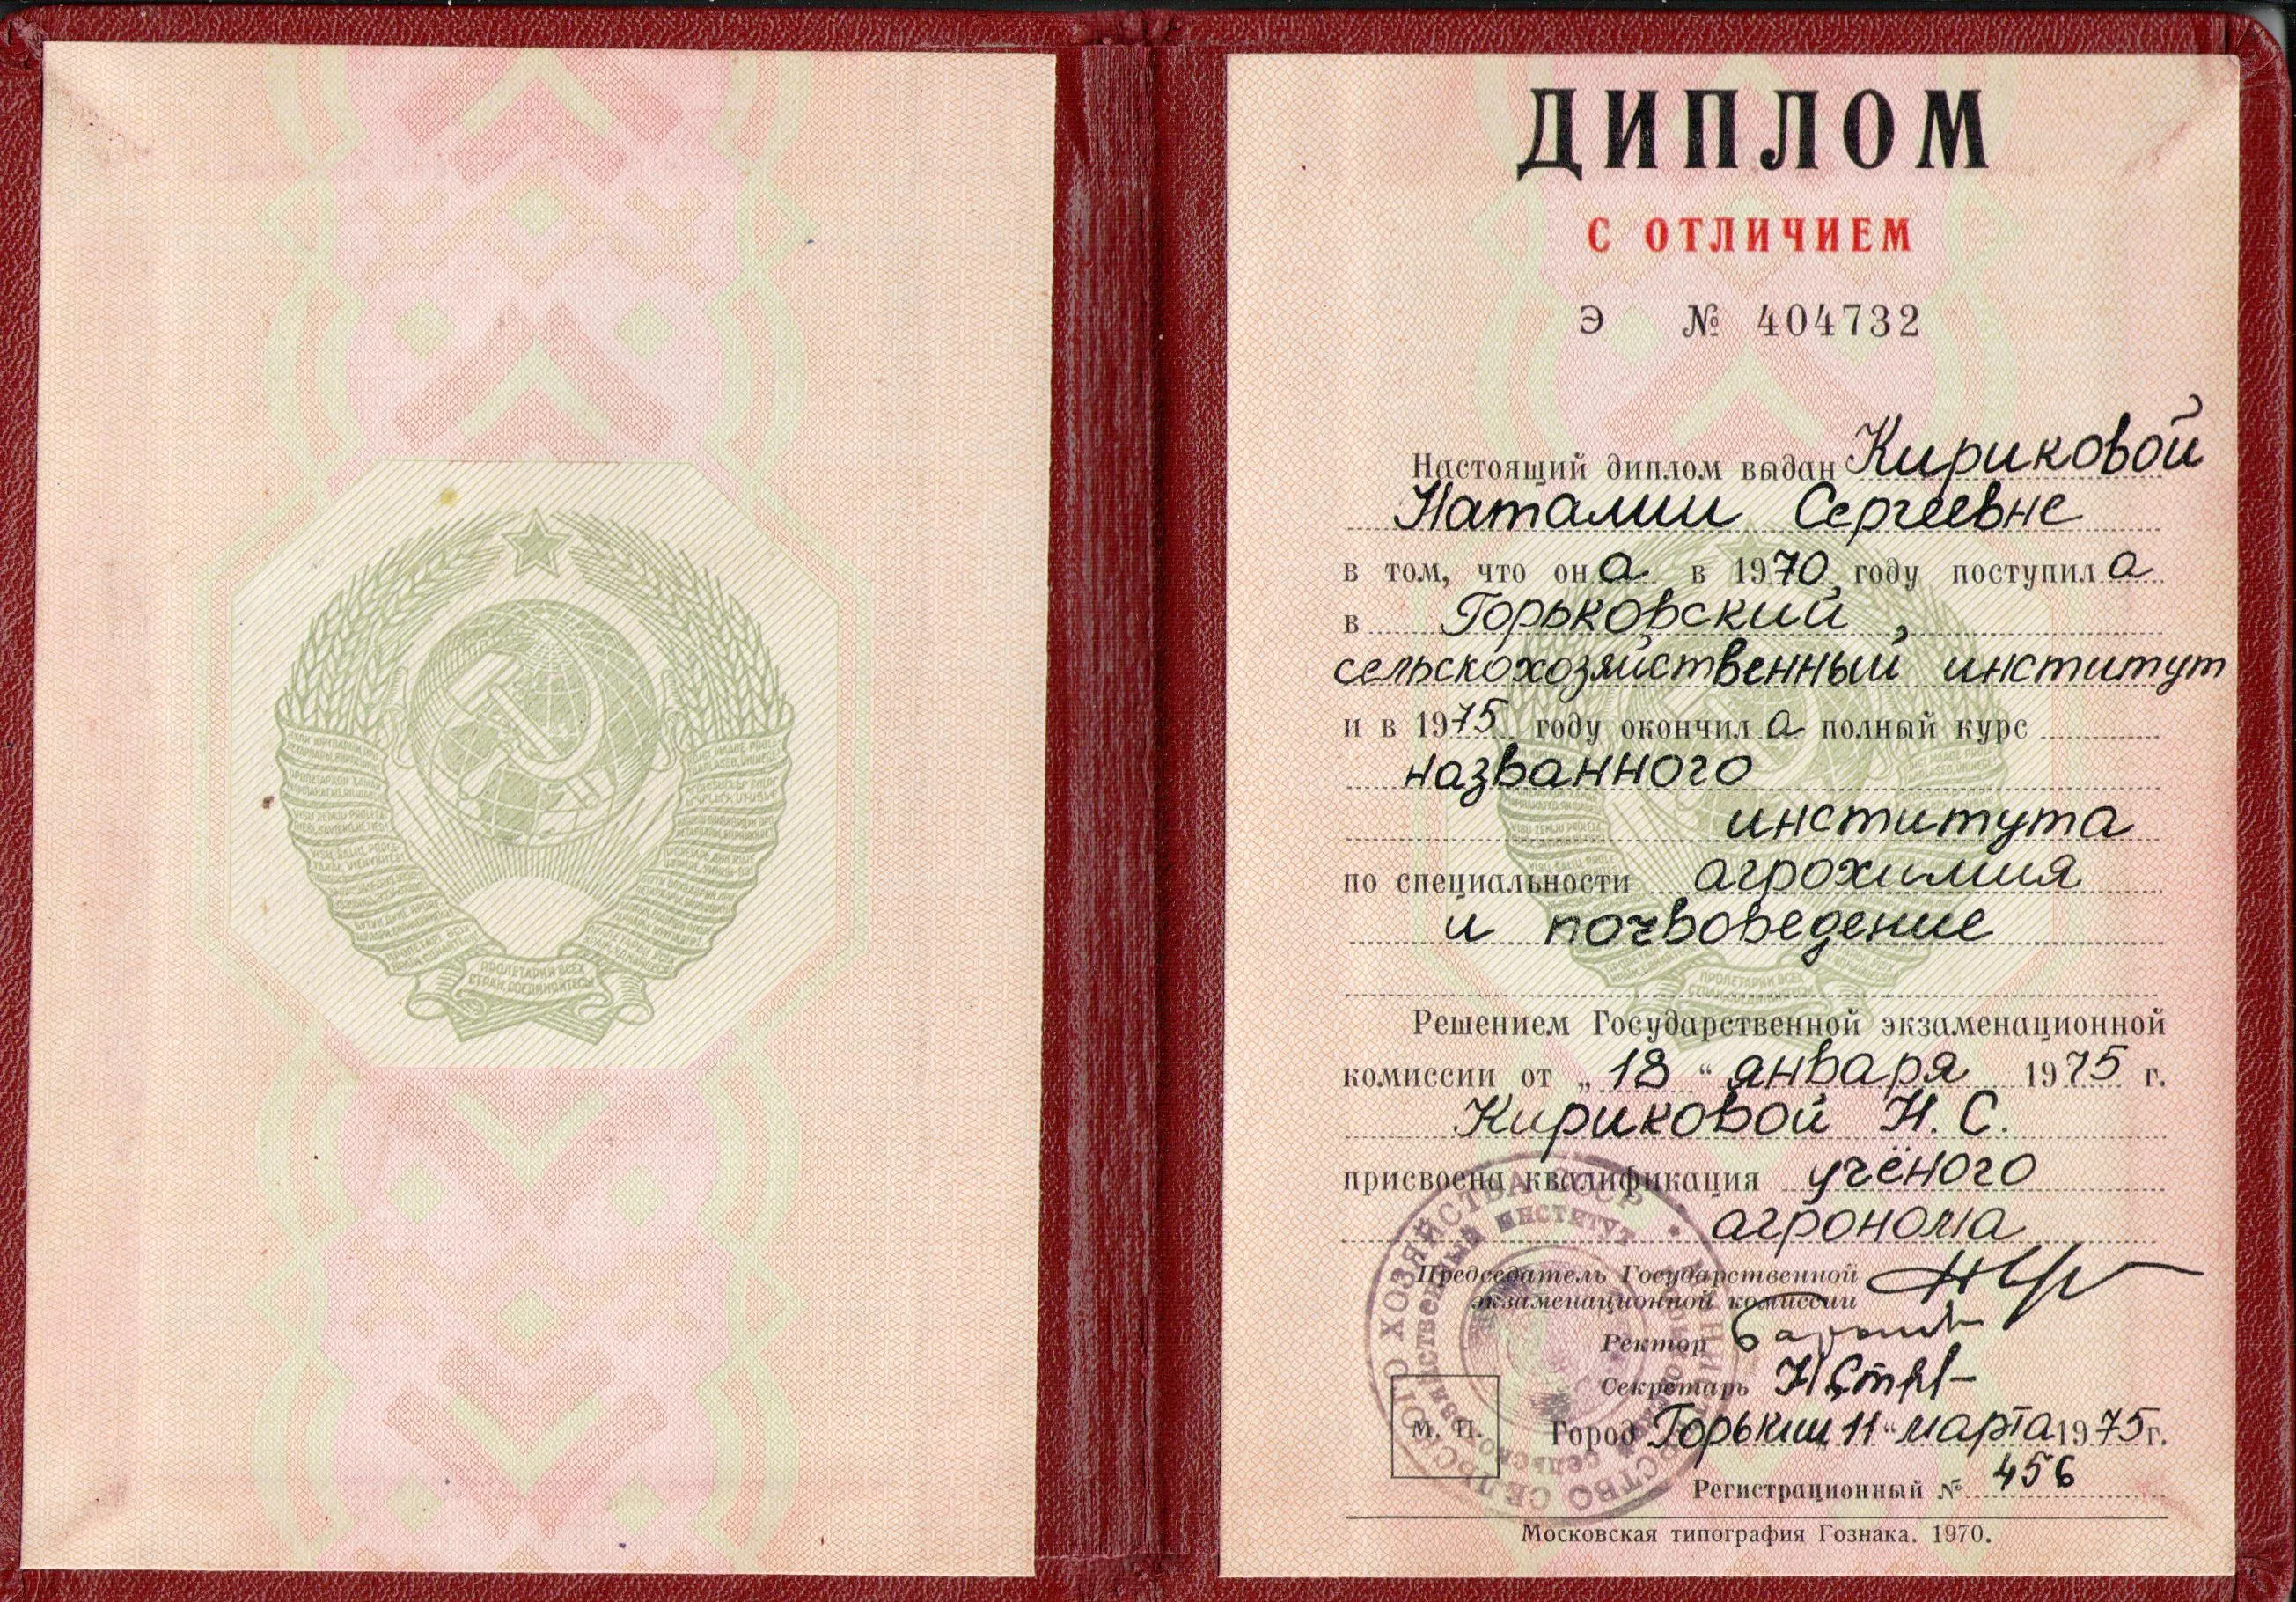 ПРОЛЕТАРИИ ВСЕХ
СТРАН, СОЕДИНЯЙТЕСЬ!
ДИПЛОМ
С ОТЛИЧИЕМ
Э № 404732
Настоящий диплом выдан Кириковой
Наталии Сергеевне
в том, что она в 1970 году поступила
в Горьковский
сельскохозяйственный институт
и в 1975 году окончила полный курс
названного
института
по специальности агрохимия
и почвоведение
Решением Государственной экзаменационной
комиссии от „18“ января 1975 г.
Кириковой Н. С.
присвоена квалификация учёного
агронома
Председатель Государственной
экзаменационной комиссии
Ректор
Секретарь
М. П.
Город Горький 11 “ марта 1975г.
Регистрационный № 456
Московская типография Гознака. 1970.